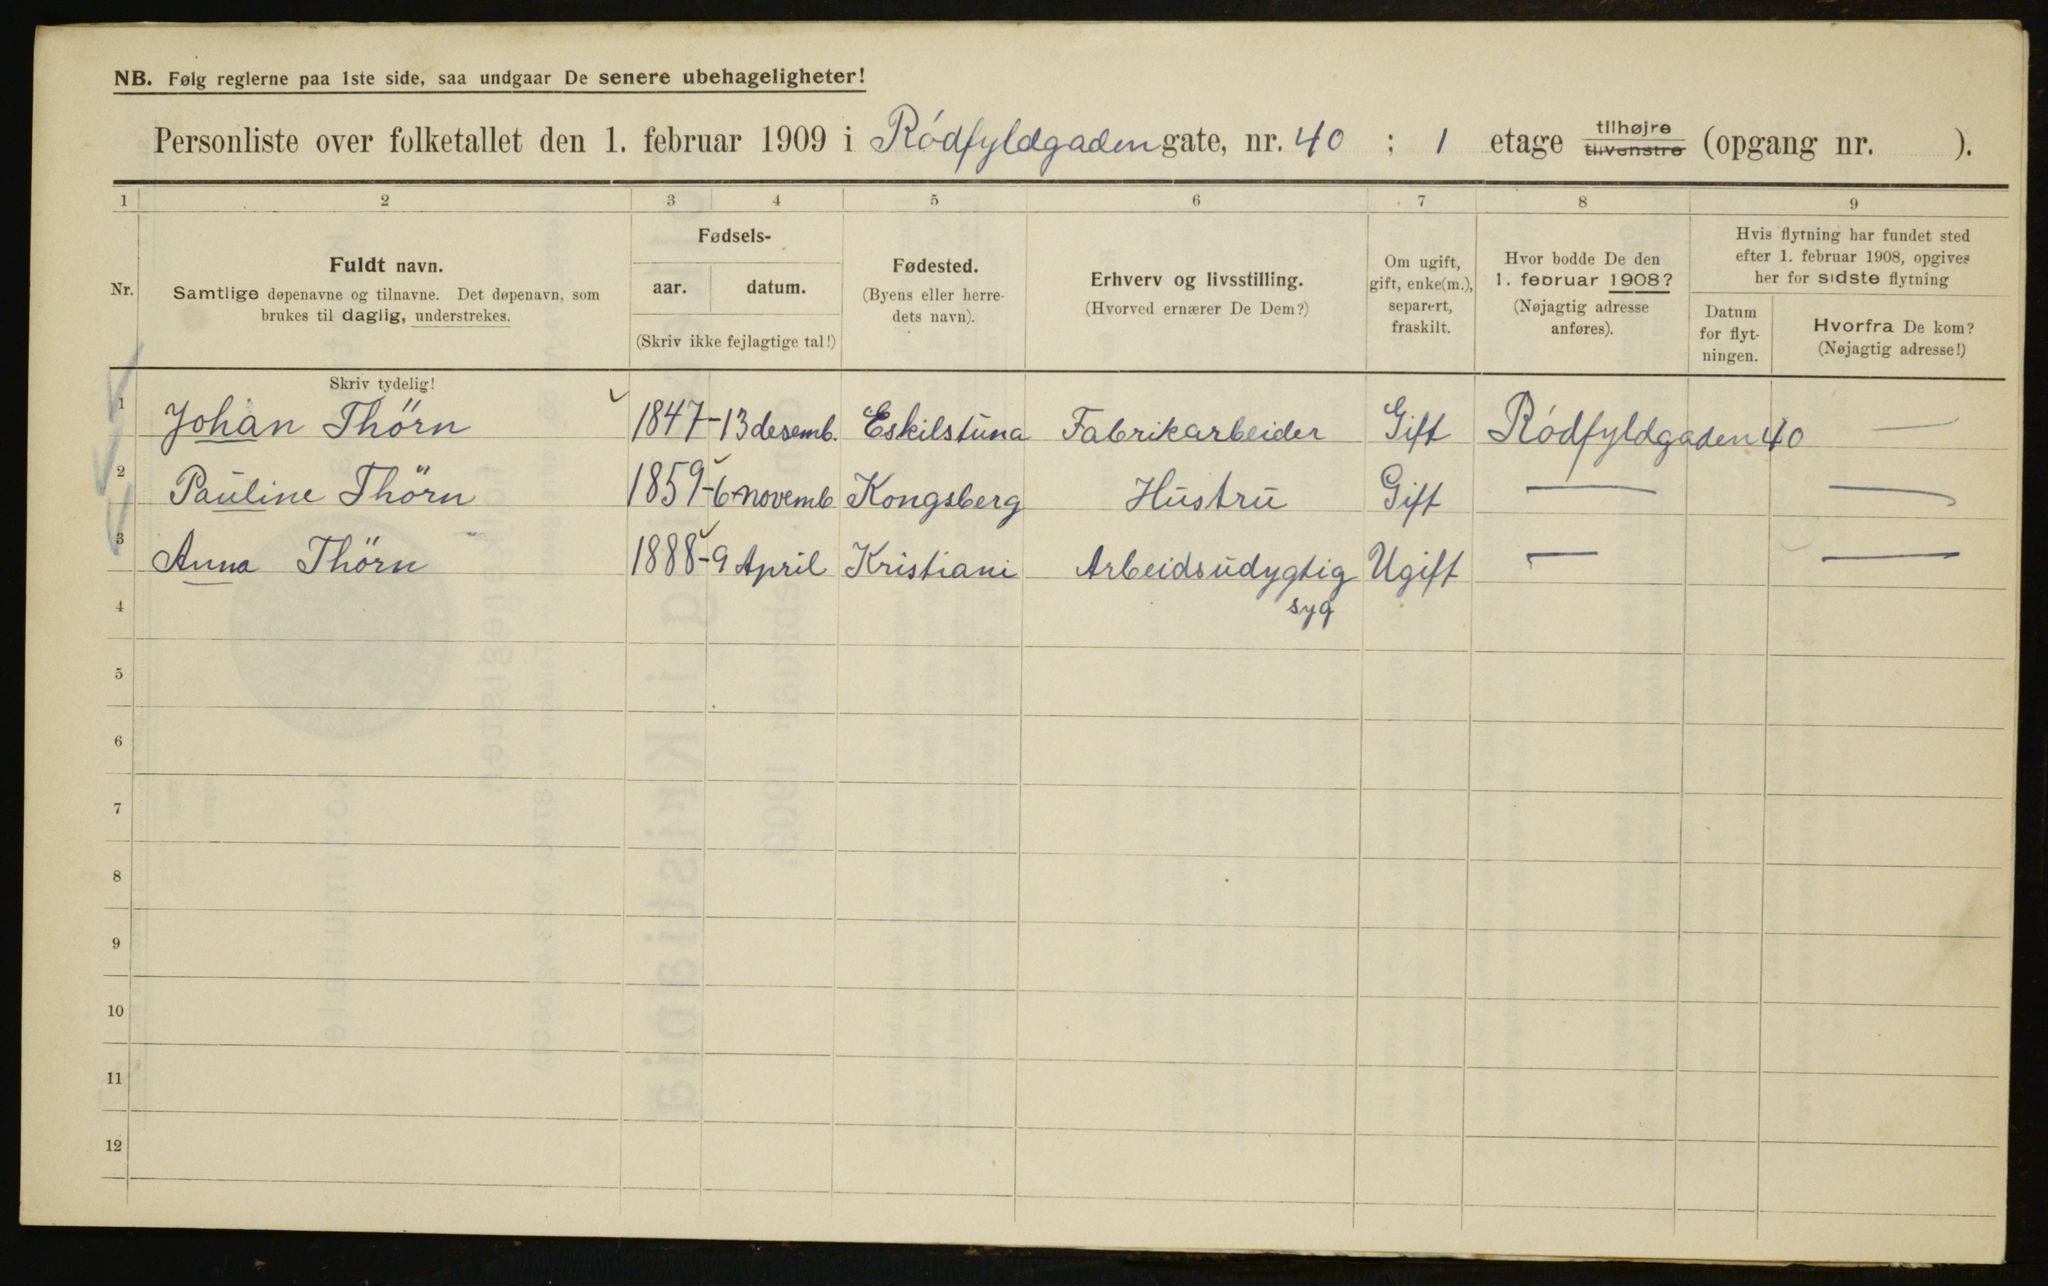 NB. Følg reglerne paa 1ste side, saa undgaar De senere ubehageligheter!
Personliste over folketallet den 1. februar 1909 i Rødfyldgaden gate, nr. 40 ; 1 etage tilhøjre tilvenstre (opgang nr. ).
1 2 3 4 5 6 7 8 9
Nr.
Fuldt navn.
Samtlige døpenavne og tilnavne. Det døpenavn, som
brukes til daglig, understrekes.
Skriv tydelig!
Fødsels-
aar. datum.
(Skriv ikke fejlagtige tal!)
Fødested.
(Byens eller herre-
dets navn).
Erhverv og livsstilling.
(Hvorved ernærer De Dem?)
Om ugift,
gift, enke(m.),
separert,
fraskilt.
Hvor bodde De den
1. februar 1908?
(Nøjagtig adresse
anføres).
Hvis flytning har fundet sted
efter 1. februar 1908, opgives
her for sidste flytning
Datum
for flyt-
ningen.
Hvorfra De kom?
(Nøjagtig adresse!)
1 Johan Thörn 1847 - 13 desemb. Eskilstuna Fabrikarbeider Gift Rødfyldgaden 40 —
2 Pauline Thörn 1859 - 6 novemb Kongsberg Hustru Gift — —
3 Anna Thörn 1888 - 9 April Kristiani Arbeidsudygtig Ugift — —
syg
4
5
6
7
8
9
10
11
12